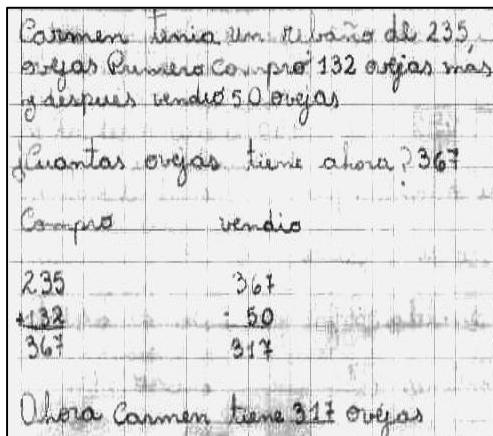 Carmen tenia un rebaño de 235
ovejas Primero compró 132 ovejas más
y despues vendio 50 ovejas
¿Cuantas ovejas tiene ahora? 367
Compro vendio
235 367
+132 - 50
367 317
Ahora Carmen tiene 317 ovejas